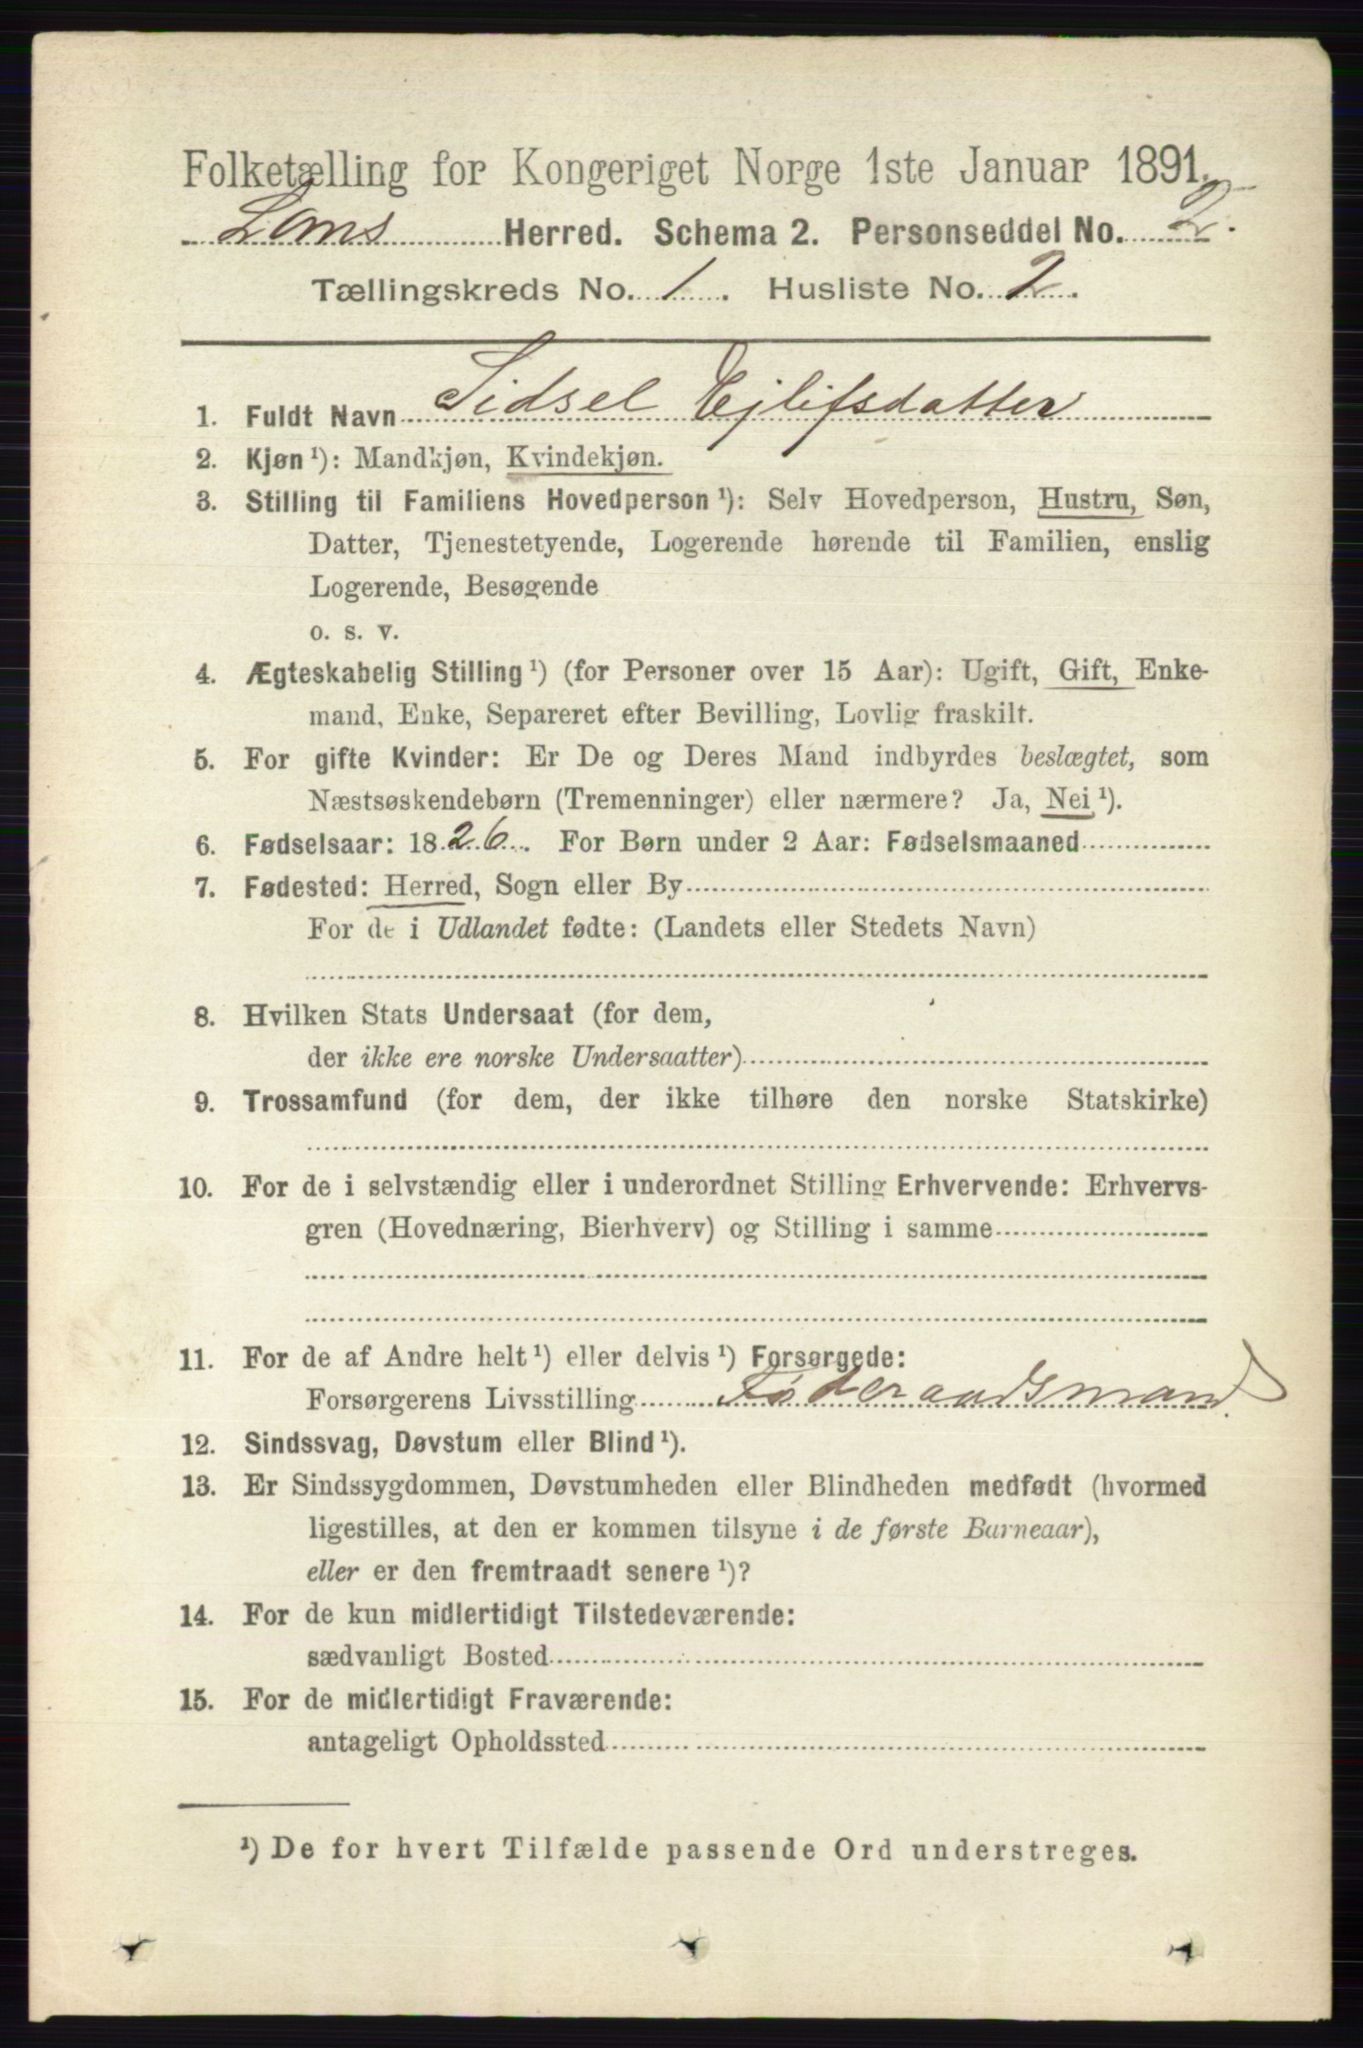 Folketælling for Kongeriget Norge 1ste Januar 1891.
Loms Herred. Schema 2. Personseddel No. 2.
Tællingskreds No. 1. Husliste No. 2.
1. Fuldt Navn Sidsel Ejlifsdatter
2. Kjøn ¹): Mandkjøn, Kvindekjøn.
3. Stilling til Familiens Hovedperson ¹): Selv Hovedperson, Hustru, Søn,
Datter, Tjenestetyende, Logerende hørende til Familien, enslig
Logerende, Besøgende
o. s. v.
4. Ægteskabelig Stilling ¹) (for Personer over 15 Aar): Ugift, Gift, Enke-
mand, Enke, Separeret efter Bevilling, Lovlig fraskilt.
5. For gifte Kvinder: Er De og Deres Mand indbyrdes beslægtet, som
Næstsøskendebørn (Tremenninger) eller nærmere? Ja, Nei ¹).
6. Fødselsaar: 1826. For Børn under 2 Aar: Fødselsmaaned
7. Fødested: Herred, Sogn eller By
For de i Udlandet fødte: (Landets eller Stedets Navn)
8. Hvilken Stats Undersaat (for dem,
der ikke ere norske Undersaatter)
9. Trossamfund (for dem, der ikke tilhøre den norske Statskirke)
10. For de i selvstændig eller i underordnet Stilling Erhvervende: Erhvervs-
gren (Hovednæring, Bierhverv) og Stilling i samme
11. For de af Andre helt ¹) eller delvis ¹) Forsørgede:
Forsørgerens Livsstilling Føderaadsmand.
12. Sindssvag, Døvstum eller Blind ¹).
13. Er Sindssygdommen, Døvstumheden eller Blindheden medfødt (hvormed
ligestilles, at den er kommen tilsyne i de første Barneaar),
eller er den fremtraadt senere ¹)?
14. For de kun midlertidigt Tilstedeværende:
sædvanligt Bosted
15. For de midlertidigt Fraværende:
antageligt Opholdssted
¹) De for hvert Tilfælde passende Ord understreges.